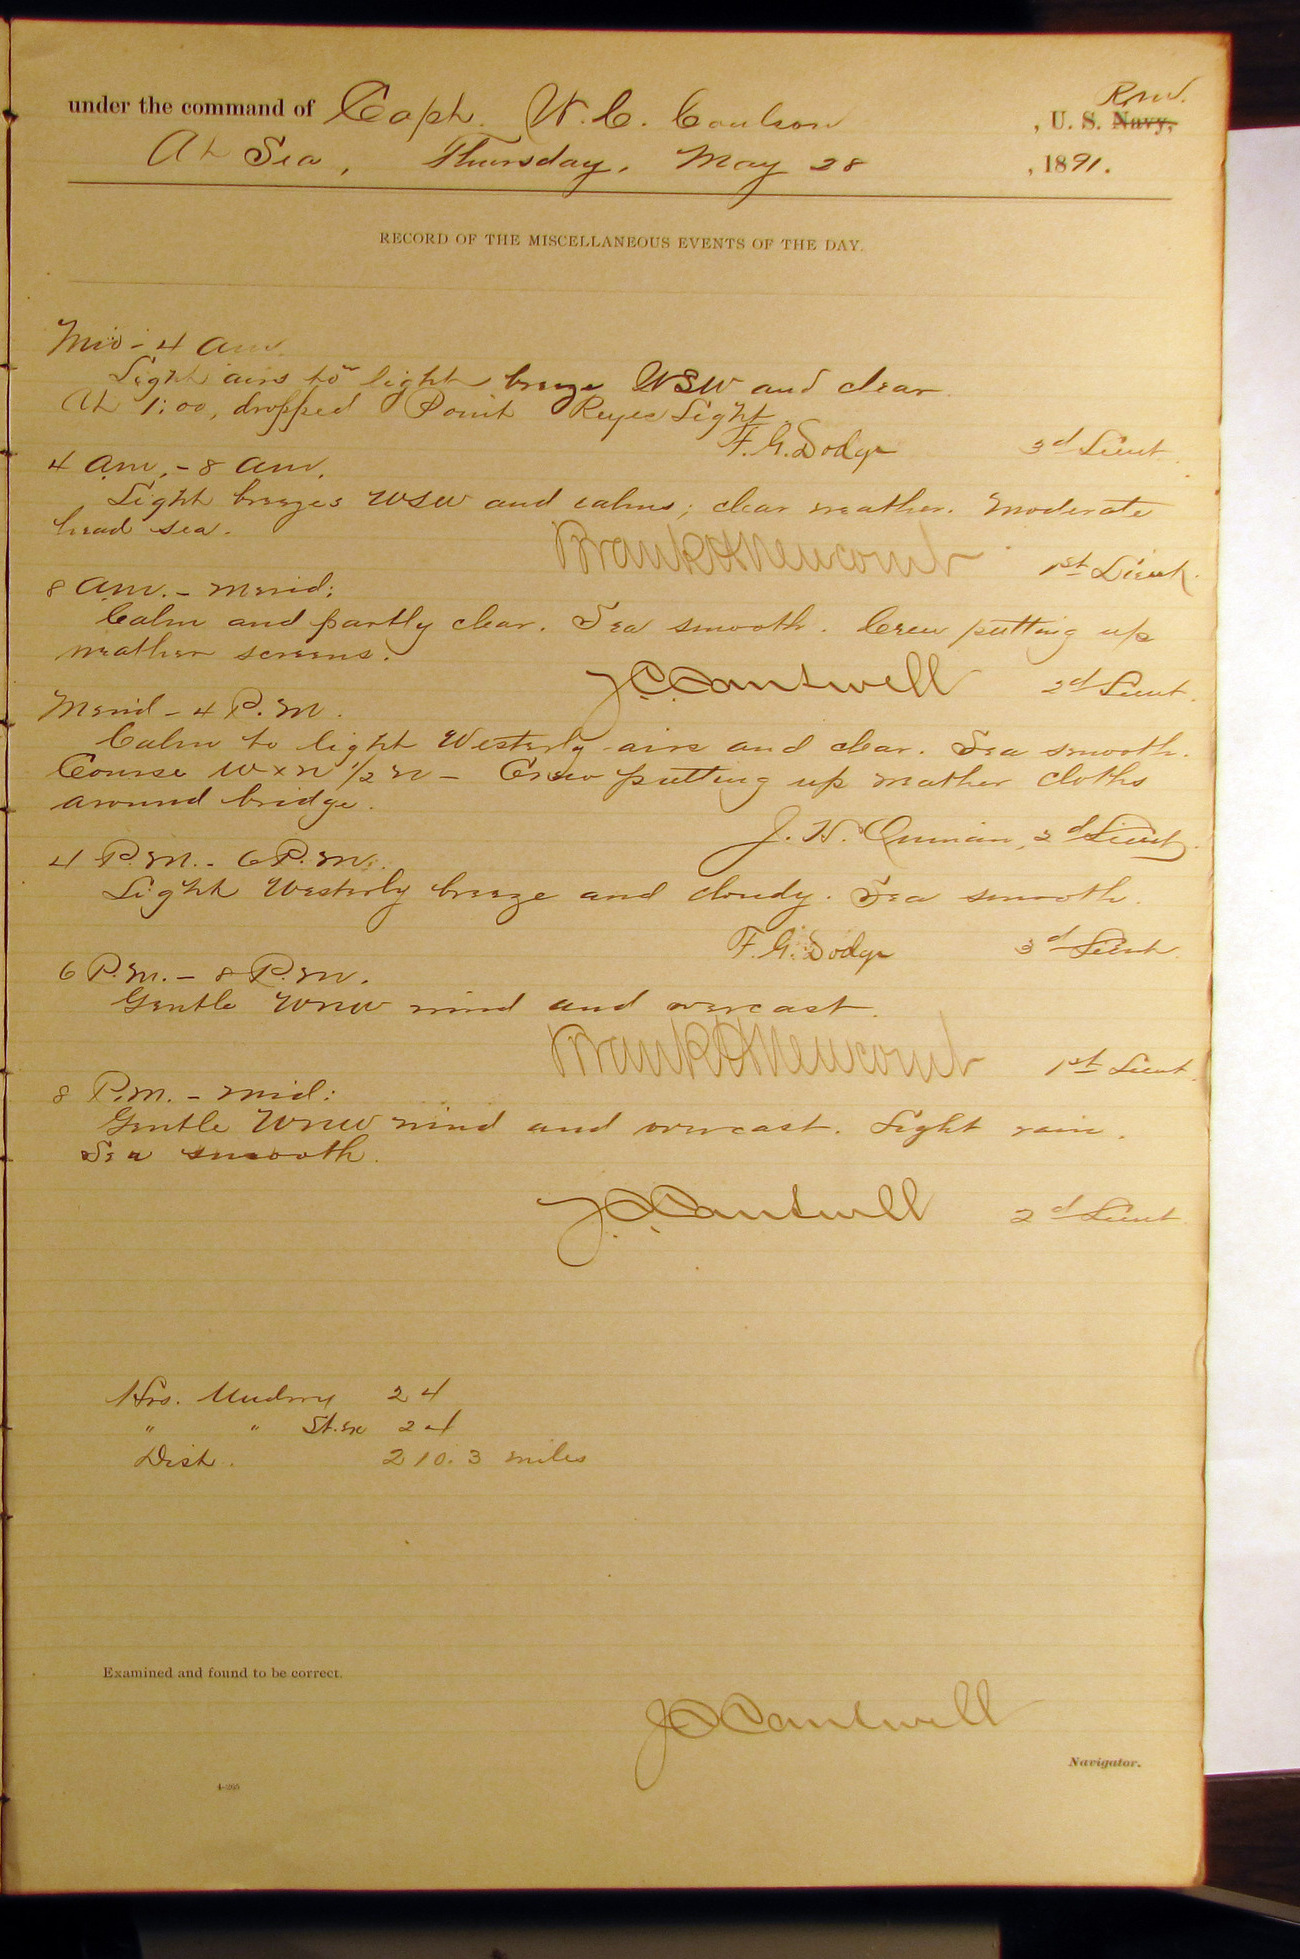 R.M.
under the command of Capt. W. C. Coulson , U. S. Navy,
At Sea, Thursday, May 28 , 1891.
RECORD OF THE MISCELLANEOUS EVENTS OF THE DAY.
Mid - 4 am.
Light airs to light breeze WSW and clear.
At 1:00, dropped Point Reyes Light
F. G. Dodge 3d Lieut.
4 am. - 8 am.
Light breezes WSW and calms; clear weather. Moderate
head sea.
Frank H Newcomb 1st Lieut.
8 am. - Merid:
Calm and partly clear. Sea smooth. Crew putting up
weather screens.
J C Cantwell 2d Lieut.
Merid - 4 P.M.
Calm to light Westerly airs and clear. Sea smooth.
Course W x N 1/2 N - Crew putting up weather cloths
around bridge.
J. H. Quinan, 2d Lieut.
4 P.M. - 6 P.M.
Light Westerly breeze and cloudy. Sea smooth.
F. G. Dodge 3d Lieut.
6 P.M. - 8 P.M.
Gentle WNW wind and overcast.
Frank H Newcomb 1st Lieut.
8 P.M. - Mid:
Gentle WNW wind and overcast. Light rain.
Sea smooth.
J. C. Cantwell 2d Lieut.
Hrs. Underway 24
" " St.m 24
Dist. 210.3 miles
Examined and found to be correct.
J C Cantwell
Navigator.
4-205